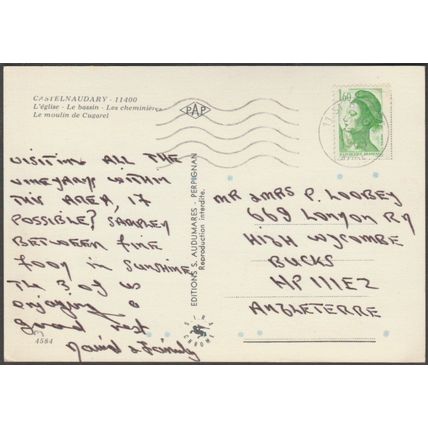 CASTELNAUDARY - 11400
L'église - Le bassin - Les cheminières
Le moulin de Cugarel
PAP
1,60
VISITING ALL THE
VINEYARDS WITHIN
THIS AREA, IF
POSSIBLE? SAMPLED
BETWEEN FINE
FOOD IN SUNSHINE
THE 3 OF US
enjoying a
good rest
David & Family
4584
EDITIONS S. AUDUMARES - PERPIGNAN
Reproduction interdite.
MR & MRS P. LOOBEY
669 LONDON RD
HIGH WYCOMBE
BUCKS
HP111EZ
ANGLETERRE